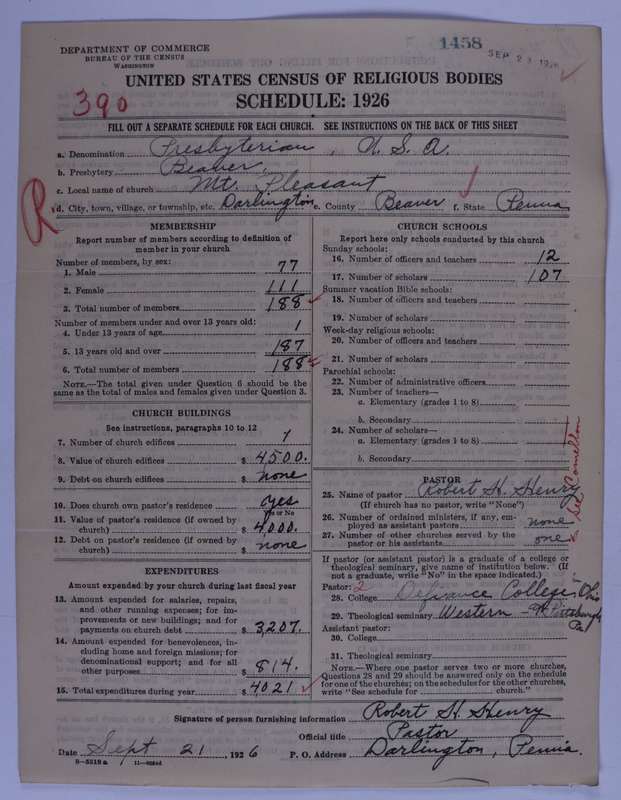 1458
SEP 23 1926
DEPARTMENT OF COMMERCE
BUREAU OF THE CENSUS
WASHINGTON
UNITED STATES CENSUS OF RELIGIOUS BODIES
390
SCHEDULE: 1926
FILL OUT A SEPARATE SCHEDULE FOR EACH CHURCH. SEE INSTRUCTIONS ON THE BACK OF THIS SHEET
a. Denomination Presbyterian, U. S. A.
b. Presbytery Beaver,
c. Local name of church Mt. Pleasant
R
d. City, town, village, or township, etc. Darlington e. County Beaver f. State Penna
MEMBERSHIP
Report number of members according to definition of member in your church
Number of members, by sex:
1. Male 77
2. Female 111
3. Total number of members 188
Number of members under and over 13 years old:
4. Under 13 years of age 1
5. 13 years old and over 187
6. Total number of members 188
NOTE.—The total given under Question 6 should be the
same as the total of males and females given under Question 3.
CHURCH BUILDINGS
See instructions, paragraphs 10 to 12
7. Number of church edifices 1
8. Value of church edifices $ 4500.
9. Debt on church edifices $ none
10. Does church own pastor's residence yes
Yes or No
11. Value of pastor's residence (if owned by
church) $ 4000.
12. Debt on pastor's residence (if owned by
church) $ none
EXPENDITURES
Amount expended by your church during last fiscal year
13. Amount expended for salaries, repairs,
and other running expenses; for im-
provements or new buildings; and for
payments on church debt $ 3,207.
14. Amount expended for benevolences, in-
cluding home and foreign missions; for
denominational support; and for all
other purposes $ 814.
15. Total expenditures during year $ 4021
CHURCH SCHOOLS
Report here only schools conducted by this church
Sunday schools:
16. Number of officers and teachers 12
17. Number of scholars 107
Summer vacation Bible schools:
18. Number of officers and teachers
19. Number of scholars
Week-day religious schools:
20. Number of officers and teachers
21. Number of scholars
Parochial schools:
22. Number of administrative officers
23. Number of teachers—
a. Elementary (grades 1 to 8)
b. Secondary
24. Number of scholars—
a. Elementary (grades 1 to 8)
b. Secondary
PASTOR
25. Name of pastor Robert H. Henry
(If church has no pastor, write "None")
26. Number of ordained ministers, if any, em-
ployed as assistant pastors none
27. Number of other churches served by the
pastor or his assistants one
See
If pastor (or assistant pastor) is a graduate of a college or
theological seminary, give name of institution below. (If
not a graduate, write "No" in the space indicated.)
Pastor: 2
28. College Defiance College in Ohio
29. Theological seminary Western - at Pittsburgh Pa.
Assistant pastor:
30. College
31. Theological seminary
NOTE.—Where one pastor serves two or more churches,
Questions 28 and 29 should be answered only on the schedule
for one of the churches; on the schedules for the other churches,
write "See schedule for church."
Signature of person furnishing information Robert H. Henry
Official title Pastor
Date Sept 21, 1926 P. O. Address Darlington, Penna.
8—5518a 11—9056d